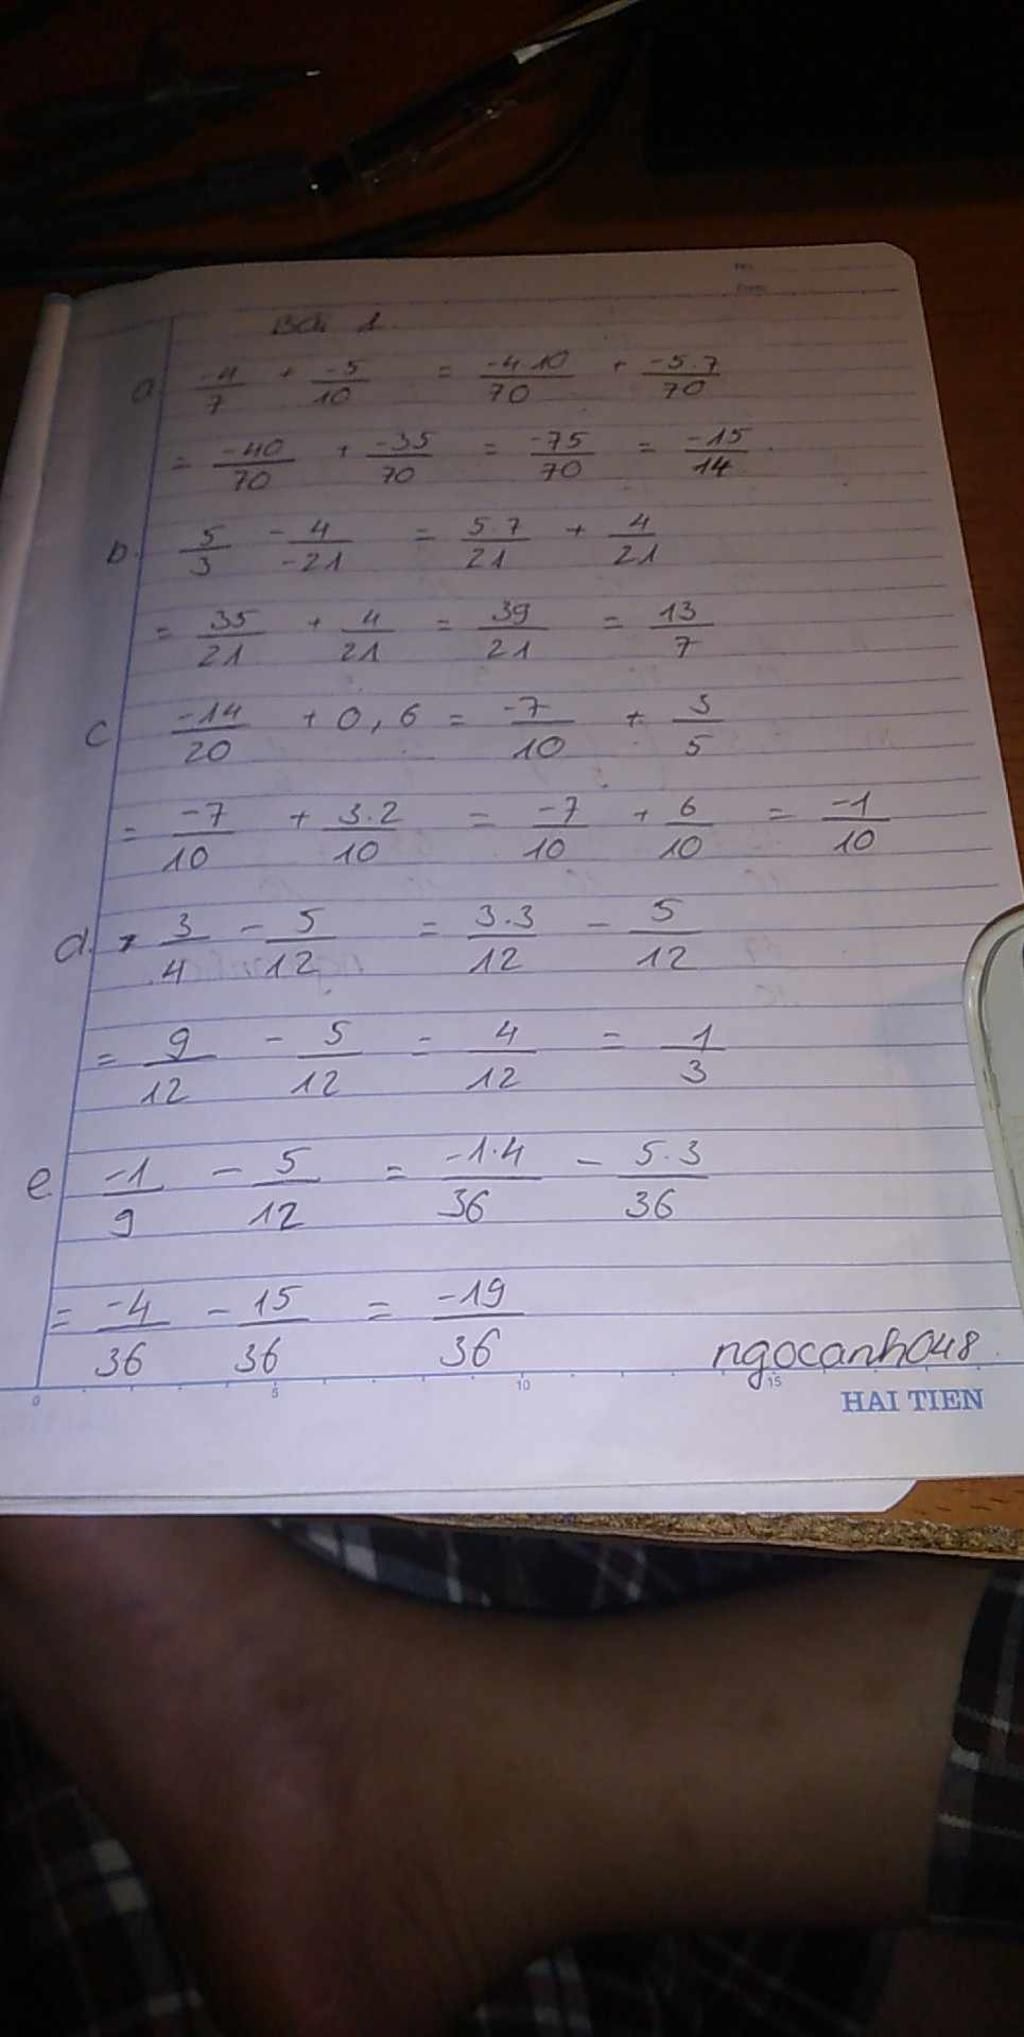 Bài 1
a. -4/7 + -5/10 = -4.10/70 + -5.7/70
= -40/70 + -35/70 = -75/70 = -15/14.
b. 5/3 - 4/-21 = 5.7/21 + 4/21
= 35/21 + 4/21 = 39/21 = 13/7
c -14/20 + 0,6 = -7/10 + 3/5
= -7/10 + 3.2/10 = -7/10 + 6/10 = -1/10
d. 3/4 - 5/12 = 3.3/12 - 5/12
= 9/12 - 5/12 = 4/12 = 1/3
e -1/9 - 5/12 = -1.4/36 - 5.3/36
= -4/36 - 15/36 = -19/36
ngocanh048
0 5 10 15
HAI TIEN